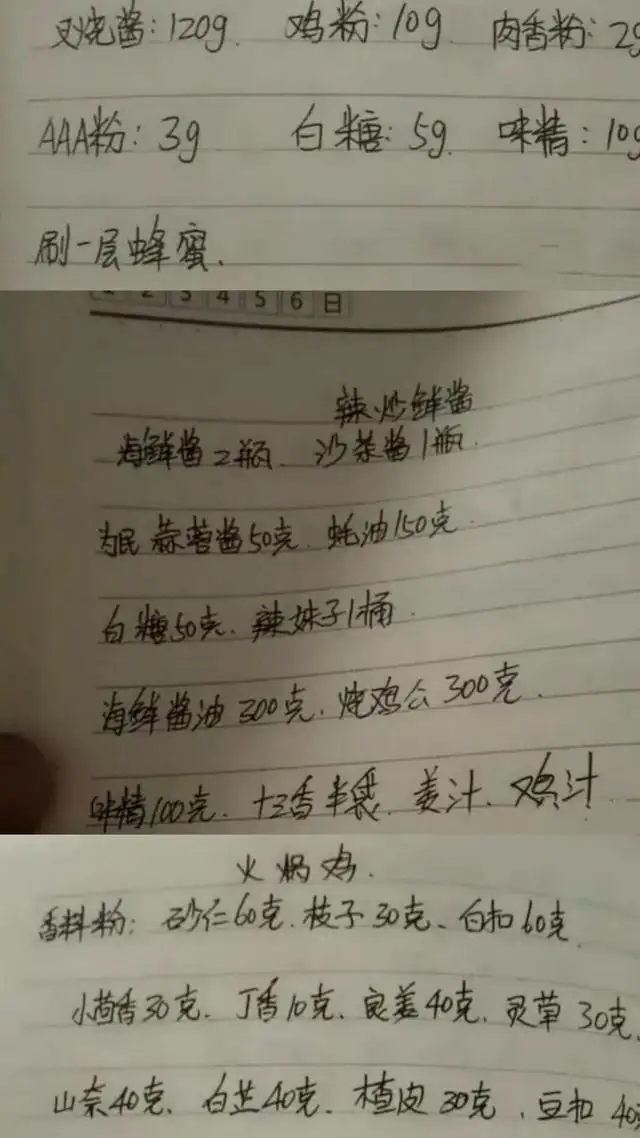 叉烧酱:120g. 鸡粉:10g 肉香粉:2g
AAA粉:3g 白糖:5g. 味精:10g
刷一层蜂蜜.
1 2 3 4 5 6 日
辣炒鲜酱
海鲜酱2瓶、沙茶酱1瓶.
为民蒜蓉酱50克.蚝油150克.
白糖50克、辣妹子1桶.
海鲜酱油300克.炖鸡公300克.
味精100克.十三香半袋.姜汁、鸡汁
火焗鸡.
香料粉:砂仁60克.枝子30克、白扣60克
小茴香30克.丁香10克.良姜40克.灵草30克.
山奈40克、白芷40克、楂皮30克、豆扣40克